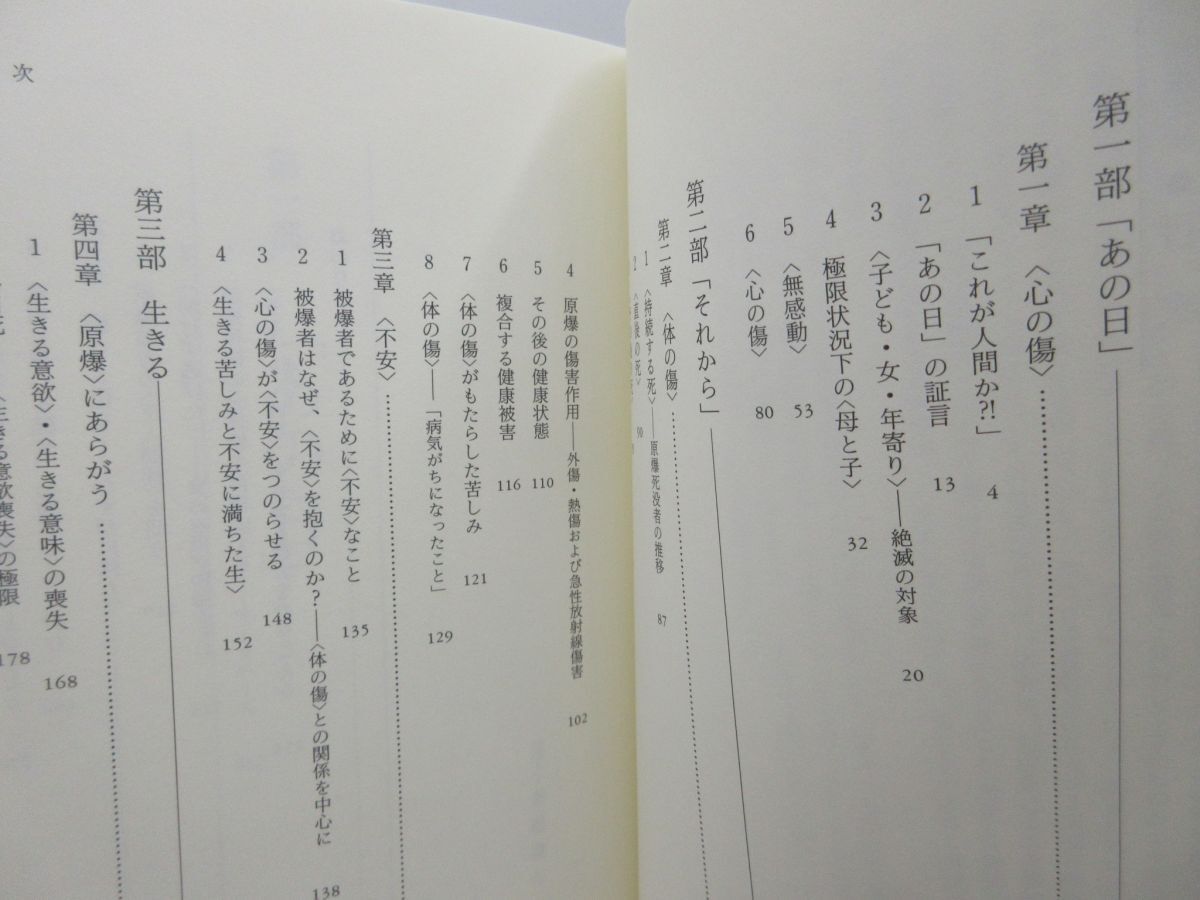 第一部「あの日」
第一章 〈心の傷〉
1 「これが人間か?!」 4
2 「あの日」の証言 13
3 〈子ども・女・年寄り〉――絶滅の対象 20
4 極限状況下の〈母と子〉 32
5 〈無感動〉 53
6 〈心の傷〉 80
第二部「それから」
第二章 〈体の傷〉
1 〈持続する死〉――原爆死没者の推移 87
2 〈直後の死〉 90
4 原爆の傷害作用――外傷・熱傷および急性放射線傷害 102
5 その後の健康状態 110
6 複合する健康被害 116
7 〈体の傷〉がもたらした苦しみ 121
8 〈体の傷〉――「病気がちになったこと」 129
第三章 〈不安〉
1 被爆者であるために〈不安〉なこと 135
2 被爆者はなぜ、〈不安〉を抱くのか?――〈体の傷〉との関係を中心に 138
3 〈心の傷〉が〈不安〉をつのらせる 148
4 〈生きる苦しみと不安に満ちた生〉 152
第三部 生きる
第四章 〈原爆〉にあらがう
1 〈生きる意欲〉・〈生きる意味〉の喪失 168
〈生きる意欲喪失〉の極限 178
次